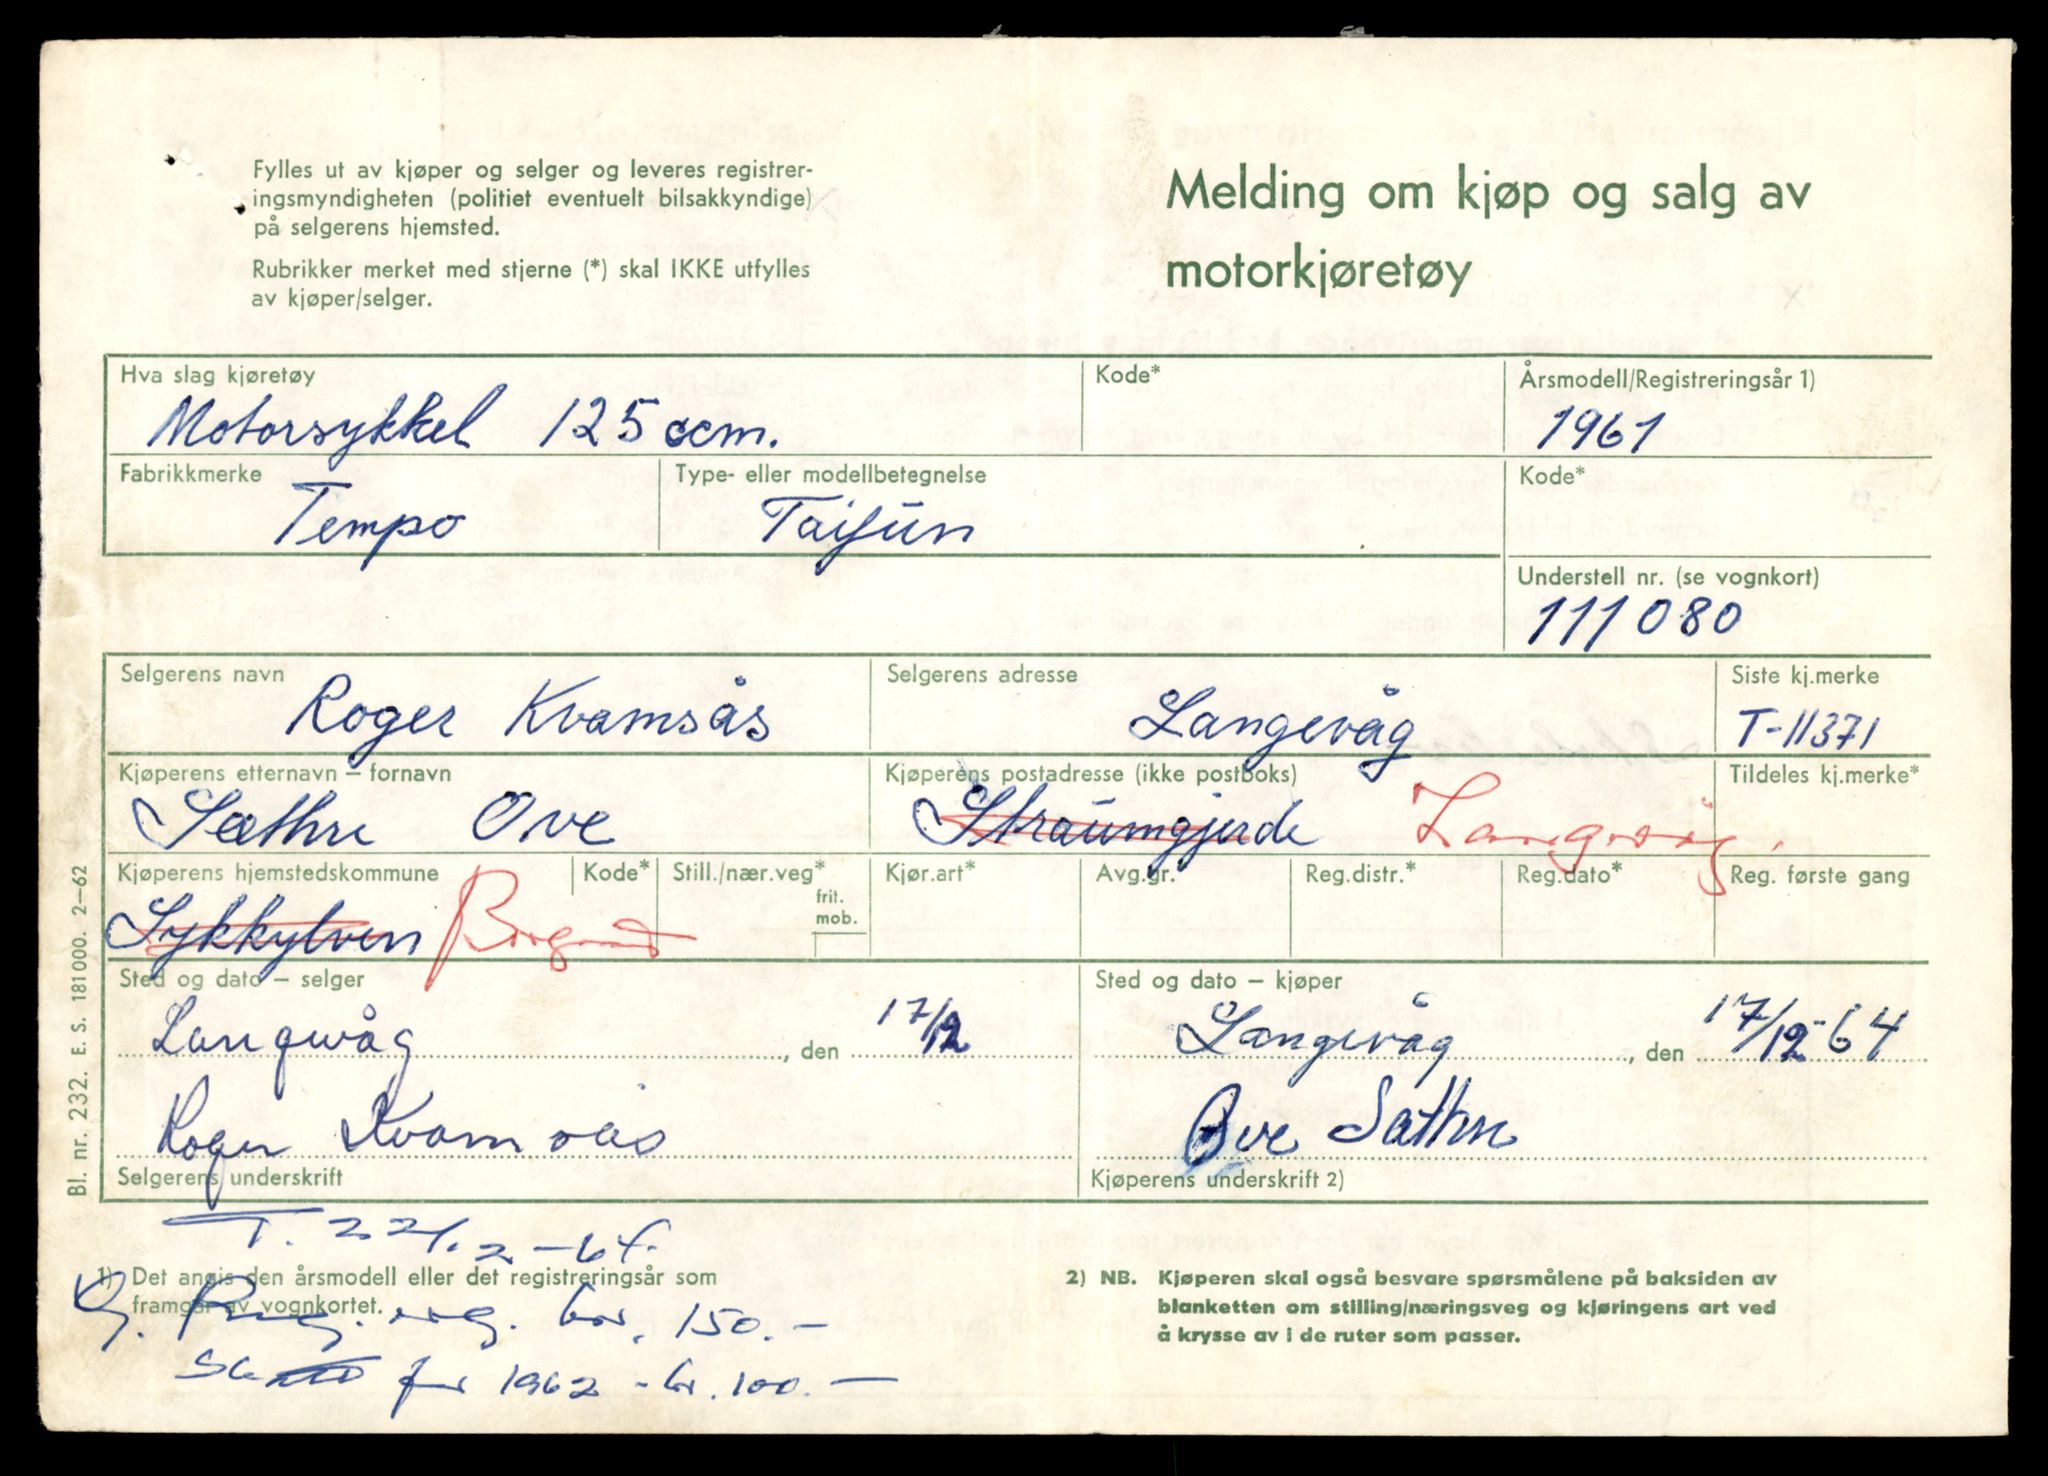 Fylles ut av kjøper og selger og leveres registrer-
ingsmyndigheten (politiet eventuelt bilsakkyndige)
på selgerens hjemsted.
Rubrikker merket med stjerne (*) skal IKKE utfylles
av kjøper/selger.
Melding om kjøp og salg av
motorkjøretøy
Hva slag kjøretøy
Motorsykkel 125 ccm.
Kode*
Årsmodell/Registreringsår 1)
1961
Fabrikkmerke
Tempo
Type- eller modellbetegnelse
Taifun
Kode*
Understell nr. (se vognkort)
111080
Selgerens navn
Roger Kvamsås
Selgerens adresse
Langevåg
Siste kj.merke
T-11371
Kjøperens etternavn – fornavn
Sæthre Ove
Kjøperens postadresse (ikke postboks)
Straumgjerde Langevåg.
Tildeles kj.merke*
Kjøperens hjemstedskommune
Sykkylven Borgund
Kode*
Still./nær.veg*
frit.
mob.
Kjør.art*
Avg.gr.*
Reg.distr.*
Reg.dato*
Reg. første gang
Sted og dato – selger
Langevåg, den 17/12
Roger Kvamsås
Selgerens underskrift
Sted og dato – kjøper
Langevåg, den 17/12-64
Ove Sæthre
Kjøperens underskrift 2)
T. 22/12-64.
1) Det angis den årsmodell eller det registreringsår som
framgår av vognkortet.
reg. kr. 150.-
for 1962 - kr. 100.-
2) NB. Kjøperen skal også besvare spørsmålene på baksiden av
blanketten om stilling/næringsveg og kjøringens art ved
å krysse av i de ruter som passer.
Bl. nr. 232. E. S. 181000. 2–62